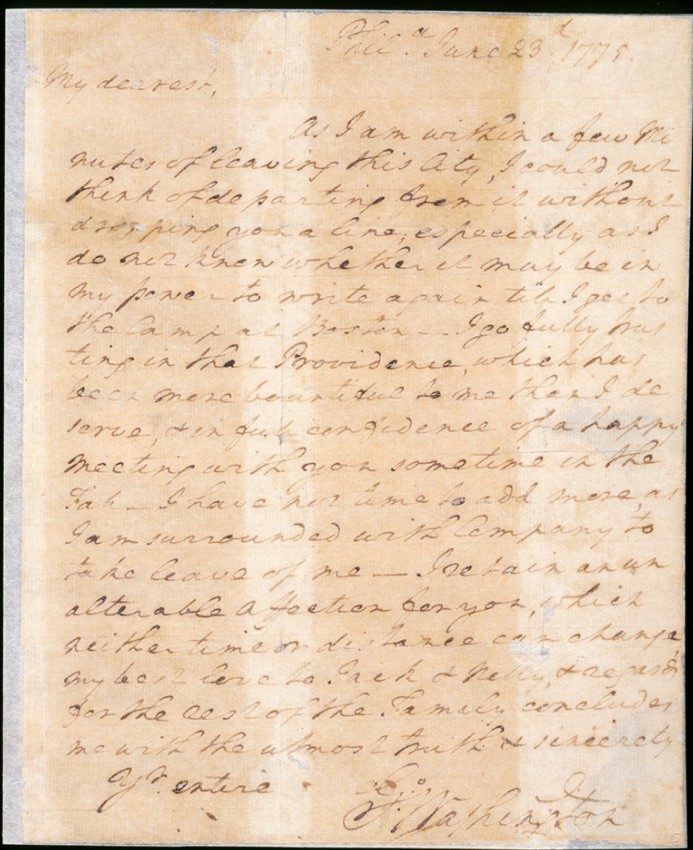 Phil.a June 23d 1775.
My dearest,
As I am within a few Mi
nutes of leaving this City, I could not
think of departing from it without
dropping you a line, especially as I
do not know whether it may be in
my power to write again till I get to
the Camp at Boston — I go fully trus
ting in that Providence, which has
been more bountiful to me than I de
serve, & in full confidence of a happy
meeting with you sometime in the
Fall — I have not time to add more, as
I am surrounded with Company to
take leave of me — I retain an un
alterable affection for you, which
neither time or distance can change,
my best love to Jack & Nelly, & regards
for the rest of the Family concludes
me with the utmost truth & sincerety
Yr. entire
Go: Washington